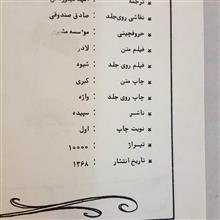 ترجمه :
نقاشی روی جلد : صادق صندوقی
حروفچینی : موسسه
فیلم متن : لادر
فیلم روی جلد : شیوه
چاپ متن : کبری
چاپ روی جلد : واژه
ناشر : سپیده
نوبت چاپ : اول
تیراژ : ۱۰۰۰۰
تاریخ انتشار : ۱۳۶۸